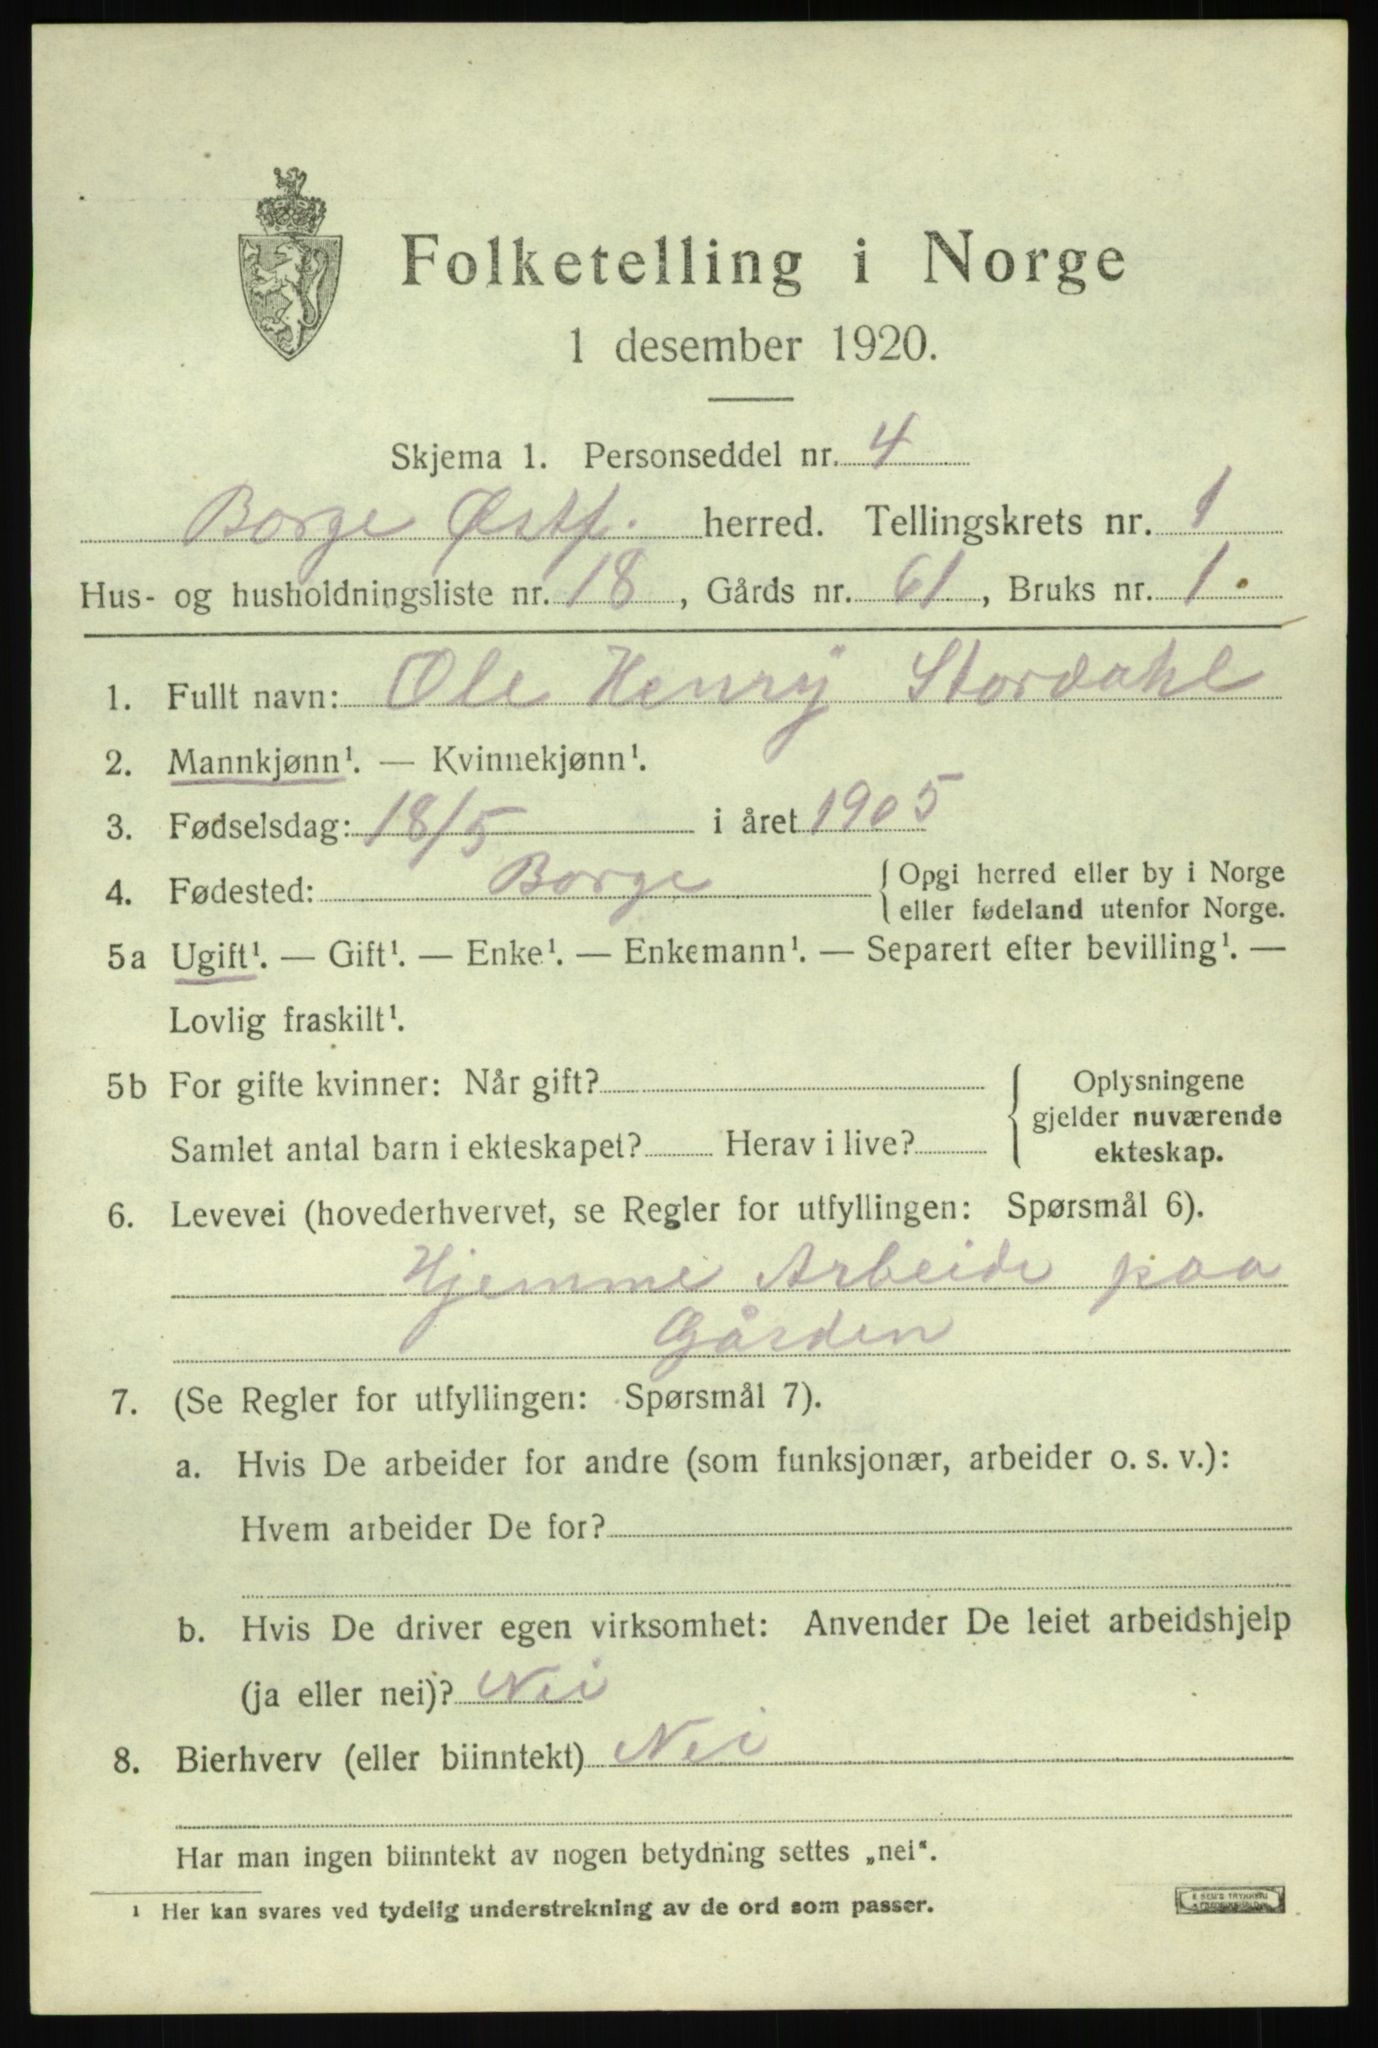 Folketelling i Norge
1 desember 1920.
Skjema 1. Personseddel nr. 4
Borge Østf. herred. Tellingskrets nr. 1
Hus- og husholdningsliste nr. 18, Gårds nr. 61, Bruks nr. 1.
1. Fullt navn: Ole Henry Stordahl
2. Mannkjønn¹. — Kvinnekjønn¹.
3. Fødselsdag: 18/5 i året 1905
4. Fødested: Borge { Opgi herred eller by i Norge
eller fødeland utenfor Norge.
5a Ugift¹. — Gift¹. — Enke¹. — Enkemann¹. — Separert efter bevilling¹. —
Lovlig fraskilt¹.
5b For gifte kvinner: Når gift? { Oplysningene
gjelder nuværende
Samlet antal barn i ekteskapet? Herav i live? ekteskap.
6. Levevei (hovederhvervet, se Regler for utfyllingen: Spørsmål 6).
Hjemme Arbeide paa
Gården
7. (Se Regler for utfyllingen: Spørsmål 7).
a. Hvis De arbeider for andre (som funksjonær, arbeider o. s. v.):
Hvem arbeider De for?
b. Hvis De driver egen virksomhet: Anvender De leiet arbeidshjelp
(ja eller nei)? Nei
8. Bierhverv (eller biinntekt) Nei
Har man ingen biinntekt av nogen betydning settes „nei“.
¹ Her kan svares ved tydelig understrekning av de ord som passer.